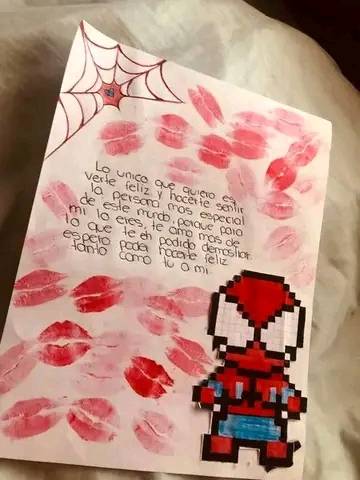 Lo unico que quiero es
verte feliz y hacerte sentir
la persona mas especial
de este mundo, porque para
mi lo eres, te amo mas de
lo que te eh podido demostrar
espero poder hacerte feliz
tanto como tu a mi.